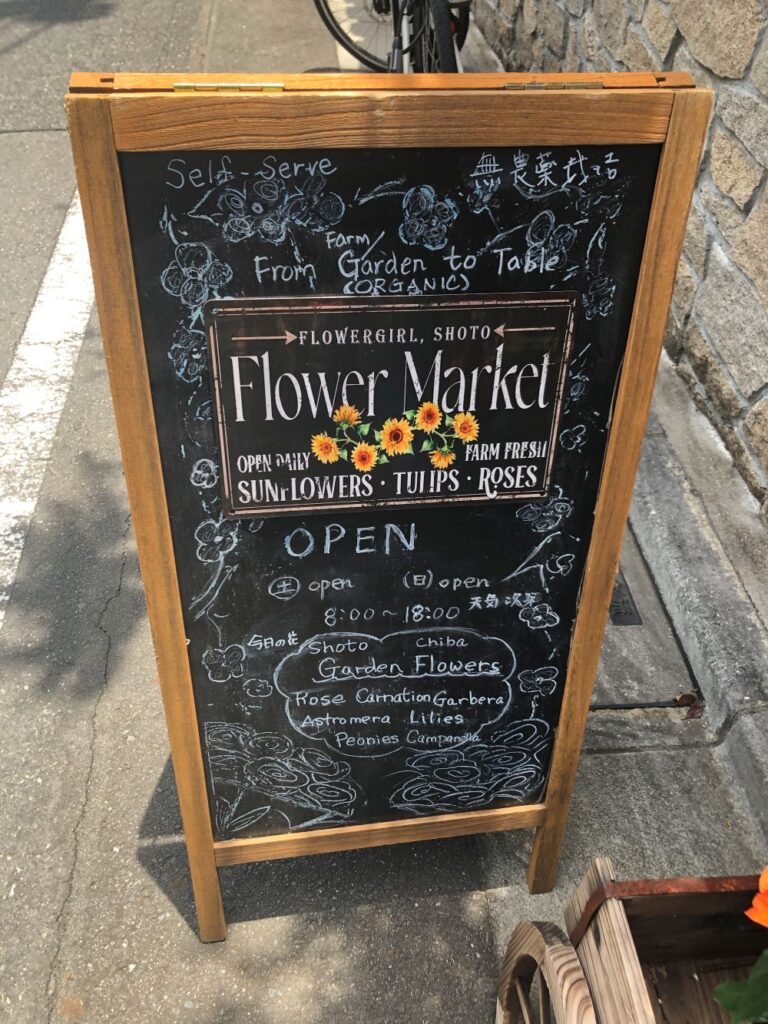 Self-Serve 無農薬栽培
Farm/
From Garden to Table
(ORGANIC)
FLOWERGIRL, SHOTO
Flower Market
OPEN DAILY FARM FRESH
SUNFLOWERS · TULIPS · ROSES
OPEN
土 open 日 open
8:00~18:00 天気次第
今日の花 Shoto Chiba
Garden Flowers
Rose Carnation Garbera
Astromera Lilies
Peonies Campanella